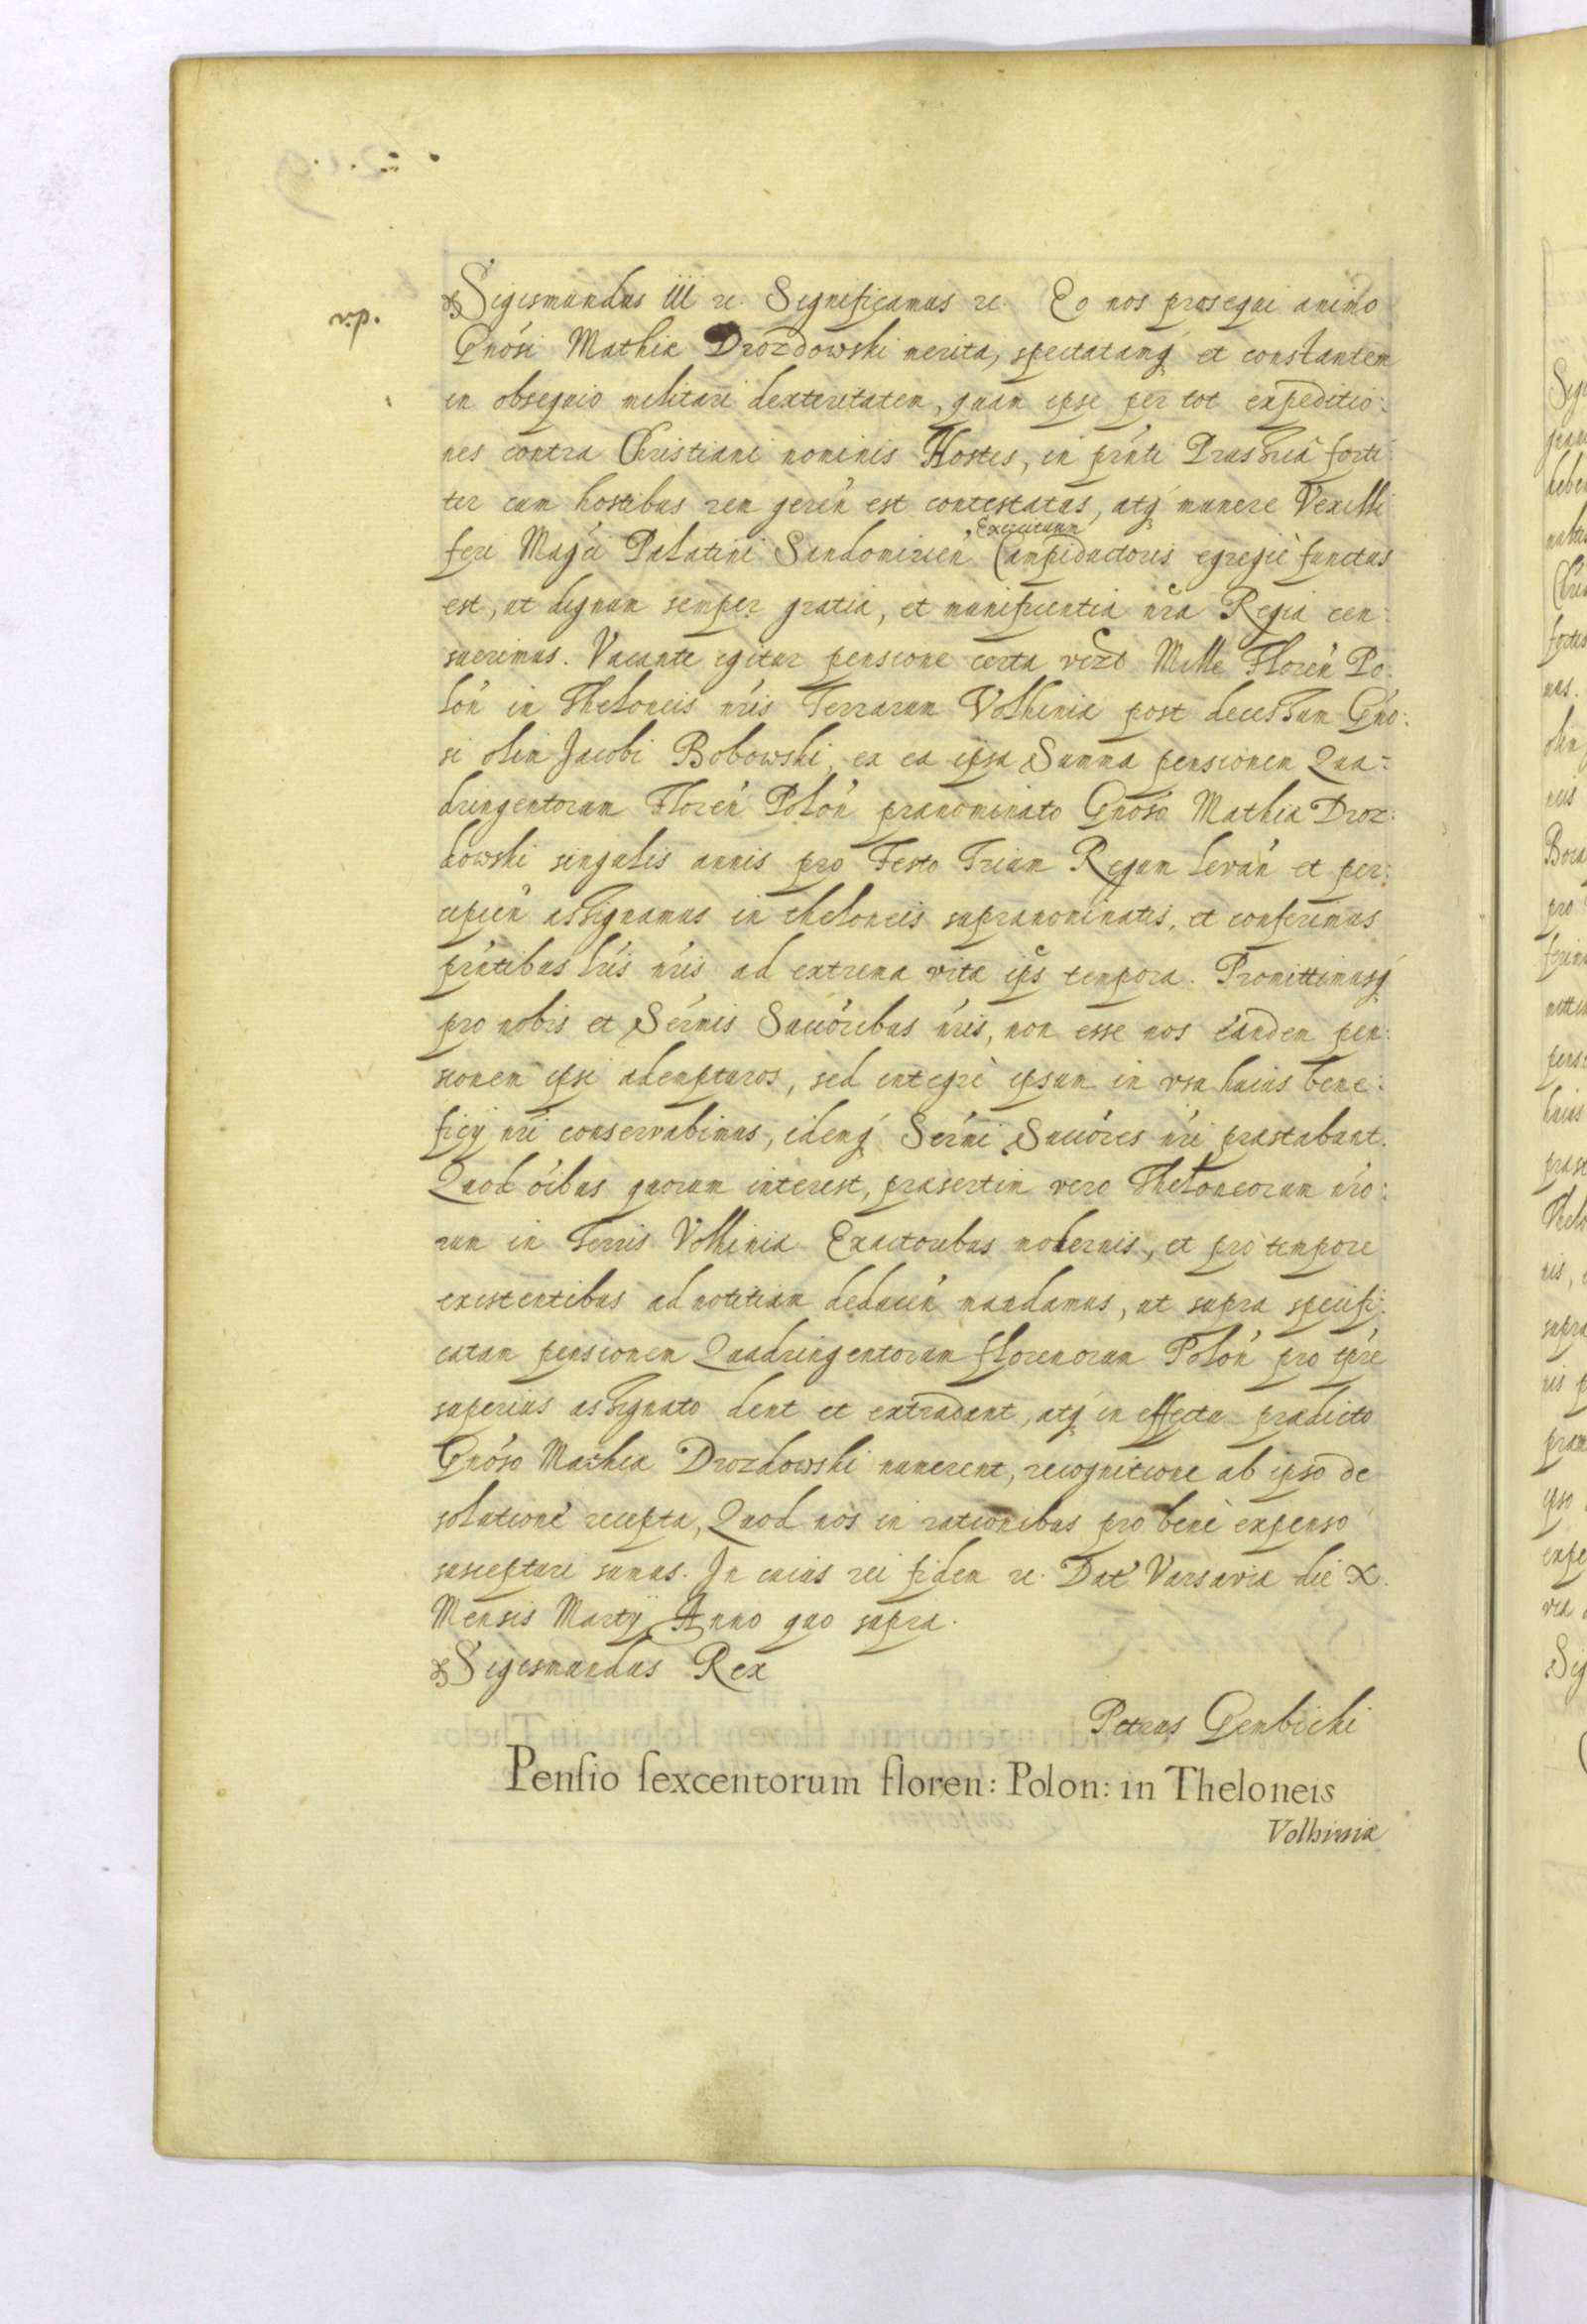 v.p.
Sigismundus III rc. Significamus rc. Eo nos prosequi animo
Gnósi Mathiæ Drozdowski merita, spectatamq́ et constantem
in obsequio militari dexteritatem, quam ipse per tot expeditio:
nes contra Christiani nominis Hostes, in prńti Prussia forti
ter cum hostibus rem gereń est contestatus, atq́ munere Vexilli
Exercituum
feri Magći Palatini Sandomirień Campiductoris egregiè functus
est, ut dignum semper gratia, et munificentia nŕa Regia cen:
suerimus. Vacante igitur pensione certa vizt Mille Floreń Po:
loń in Theloneis nŕis Terrarum Volhiniæ post decessum Gno:
si olim Jacobi Bobowski, ex ea ipsa Summa pensionem Qua:
dringentorum Floreń Poloń prænominato Gnoso Mathiæ Droz:
dowski singulis annis pro Festo Trium Regum levań et per:
cipień assignamus in theloneis supranominatis, et conferimus
prńtibus lŕis nŕis ad extrema vitæ ips tempora. Promittimusq́
pro nobis et Serḿis Succóribus nŕis, non esse nos eandem pen:
sionem ipsi adempturos, sed integrè ipsum in usu huius bene:
ficij nŕi conservabimus, idemq́ Serḿi Succóres nŕi præstabunt.
Quod óibus quorum interest, præsertim vero Theloneorum nŕo:
rum in Terris Volhiniæ Exactoribus modernis, et pro tempore
existentibus ad notitiam deducień mandamus, ut supra specifi:
catam pensionem Quadringentorum florenorum Poloń pro tpŕe
superius assignato dent et extradant, atq́ in effectu prædicto
Gnóso Mathiæ Drozdowski numerent, recognitione ab ipso de
solutione recepta, Quod nos in rationibus pro benè expenso
suscepturi sumus. In cuius rei fidem rc. Dat Varsaviæ die X.
Mensis Martij Anno quo supra.
Sigismundus Rex
Petrus Gembicki
Pensio sexcentorum floren: Polon: in Theloneis
Volhiniæ